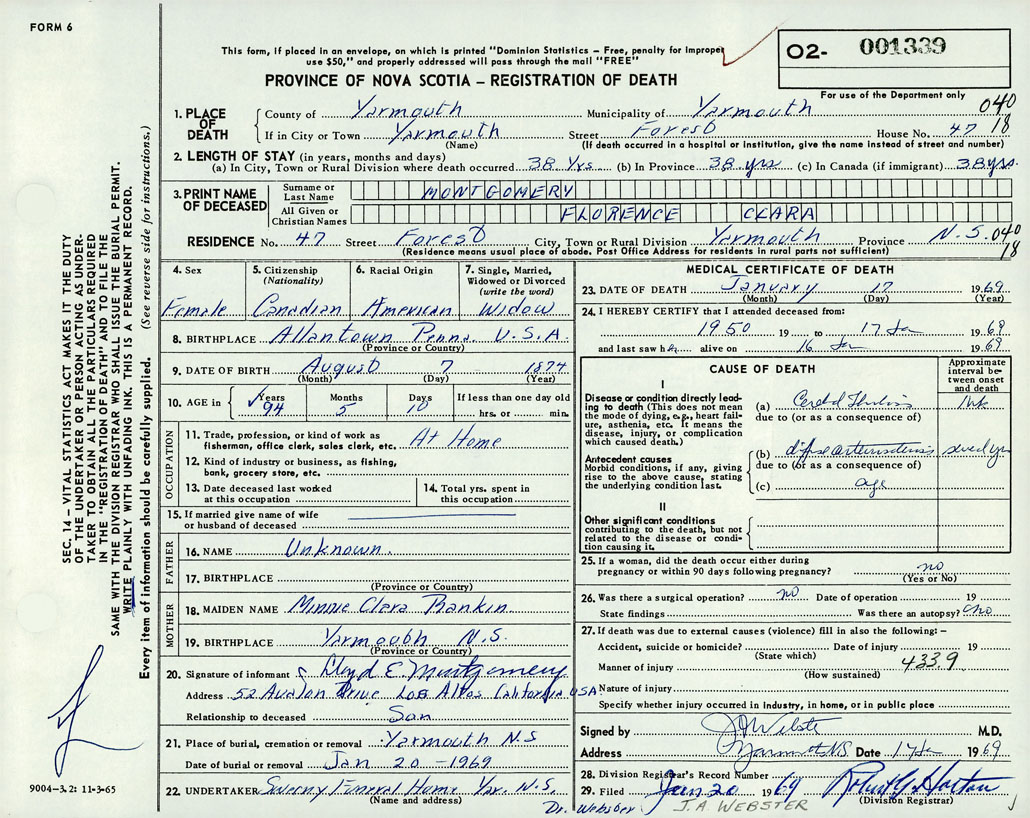 FORM 6
This form, if placed in an envelope, on which is printed "Dominion Statistics – Free, penalty for improper
use $50," and properly addressed will pass through the mail "FREE"
PROVINCE OF NOVA SCOTIA – REGISTRATION OF DEATH
O2- 001339
For use of the Department only
1. PLACE OF DEATH
County of Yarmouth Municipality of Yarmouth 040
If in City or Town Yarmouth Street Forest House No. 47 18
(Name) (If death occurred in a hospital or Institution, give the name instead of street and number)
2. LENGTH OF STAY (in years, months and days)
(a) In City, Town or Rural Division where death occurred 38 Yrs (b) In Province 38 yrs (c) In Canada (if immigrant) 38 yrs.
3. PRINT NAME OF DECEASED
Surname or Last Name MONTGOMERY
All Given or Christian Names FLORENCE CLARA
RESIDENCE No. 47 Street Forest City, Town or Rural Division Yarmouth Province N.S. 040
(Residence means usual place of abode. Post Office Address for residents in rural parts not sufficient) 18
4. Sex
Female
5. Citizenship
(Nationality)
Canadian
6. Racial Origin
American
7. Single, Married,
Widowed or Divorced
(write the word)
Widow
8. BIRTHPLACE Allantown Penna. U.S.A.
(Province or Country)
9. DATE OF BIRTH August 7 1874
(Month) (Day) (Year)
10. AGE in Years 94 Months 5 Days 10 If less than one day old
hrs. or min.
OCCUPATION
11. Trade, profession, or kind of work as
fisherman, office clerk, sales clerk, etc. At Home
12. Kind of industry or business, as fishing,
bank, grocery store, etc.
13. Date deceased last worked
at this occupation
14. Total yrs. spent in
this occupation
15. If married give name of wife
or husband of deceased
FATHER
16. NAME Unknown.
17. BIRTHPLACE
(Province or Country)
MOTHER
18. MAIDEN NAME Minnie Clara Rankin
19. BIRTHPLACE Yarmouth N.S.
(Province or Country)
20. Signature of informant Lloyd E. Montgomery
Address 52 Avalon Drive Los Altos California USA
Relationship to deceased Son
21. Place of burial, cremation or removal Yarmouth N.S
Date of burial or removal Jan 20 -1969
22. UNDERTAKER Sweeny Funeral Home Yar. N.S.
(Name and address) Dr. Webster
MEDICAL CERTIFICATE OF DEATH
23. DATE OF DEATH January 17 1969
(Month) (Day) (Year)
24. I HEREBY CERTIFY that I attended deceased from:
1950 19 to 17 Jan 1969
and last saw her alive on 16 Jan 1969
CAUSE OF DEATH
Approximate
interval be-
tween onset
and death
I
Disease or condition directly lead-
ing to death (This does not
mean the mode of dying, e.g., heart fail-
ure, asthenia, etc. It means the
disease, injury, or complication
which caused death.)
(a) 1 wk
due to (or as a consequence of)
Antecedent causes
Morbid conditions, if any, giving
rise to the above cause, stating
the underlying condition last.
(b) diffuse arteriosclerosis several yrs
due to (or as a consequence of)
(c) age
II
Other significant conditions
contributing to the death, but not
related to the disease or condi-
tion causing it.
25. If a woman, did the death occur either during
pregnancy or within 90 days following pregnancy? no
(Yes or No)
26. Was there a surgical operation? no Date of operation 19
State findings Was there an autopsy? no
27. If death was due to external causes (violence) fill in also the following: –
Accident, suicide or homicide? Date of injury 19
(State which) 4339
Manner of injury
(How sustained)
Nature of injury
Specify whether injury occurred in Industry, in home, or in public place
Signed by J A Webster M.D.
Address Yarmouth NS Date 17 Jan 1969
28. Division Registrar's Record Number
29. Filed Jan. 20 1969 Robert G. Horton
J.A. WEBSTER (Division Registrar)
SEC. 14 – VITAL STATISTICS ACT MAKES IT THE DUTY
OF THE UNDERTAKER OR PERSON ACTING AS UNDER-
TAKER TO OBTAIN ALL THE PARTICULARS REQUIRED
IN THE "REGISTRATION OF DEATH" AND TO FILE THE
SAME WITH THE DIVISION REGISTRAR WHO SHALL ISSUE THE BURIAL PERMIT.
WRITE PLAINLY WITH UNFADING INK. THIS IS A PERMANENT RECORD.
Every item of information should be carefully supplied. (See reverse side for instructions.)
9004-3.2: 11-3-65